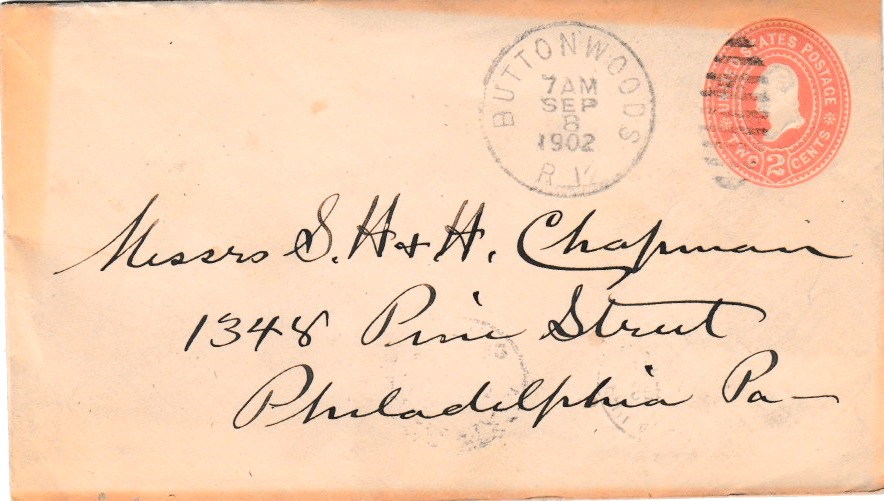 BUTTONWOODS
7AM
SEP
8
1902
R.I.
UNITED STATES POSTAGE
TWO 2 CENTS
Messrs S. H & H. Chapman
1348 Pine Street
Philadelphia Pa—